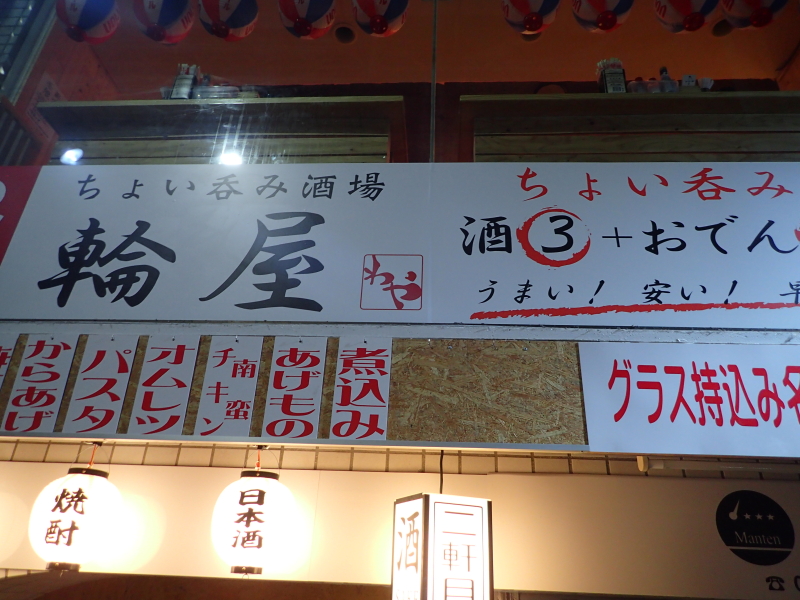 ちょい呑み酒場
輪屋
わや
ちょい呑み
酒③+おでん
うまい! 安い! 早
からあげ
パスタ
オムレツ
チキン南蛮
あげもの
煮込み
グラス持込み名
焼酎
日本酒
酒
二軒目
Manten